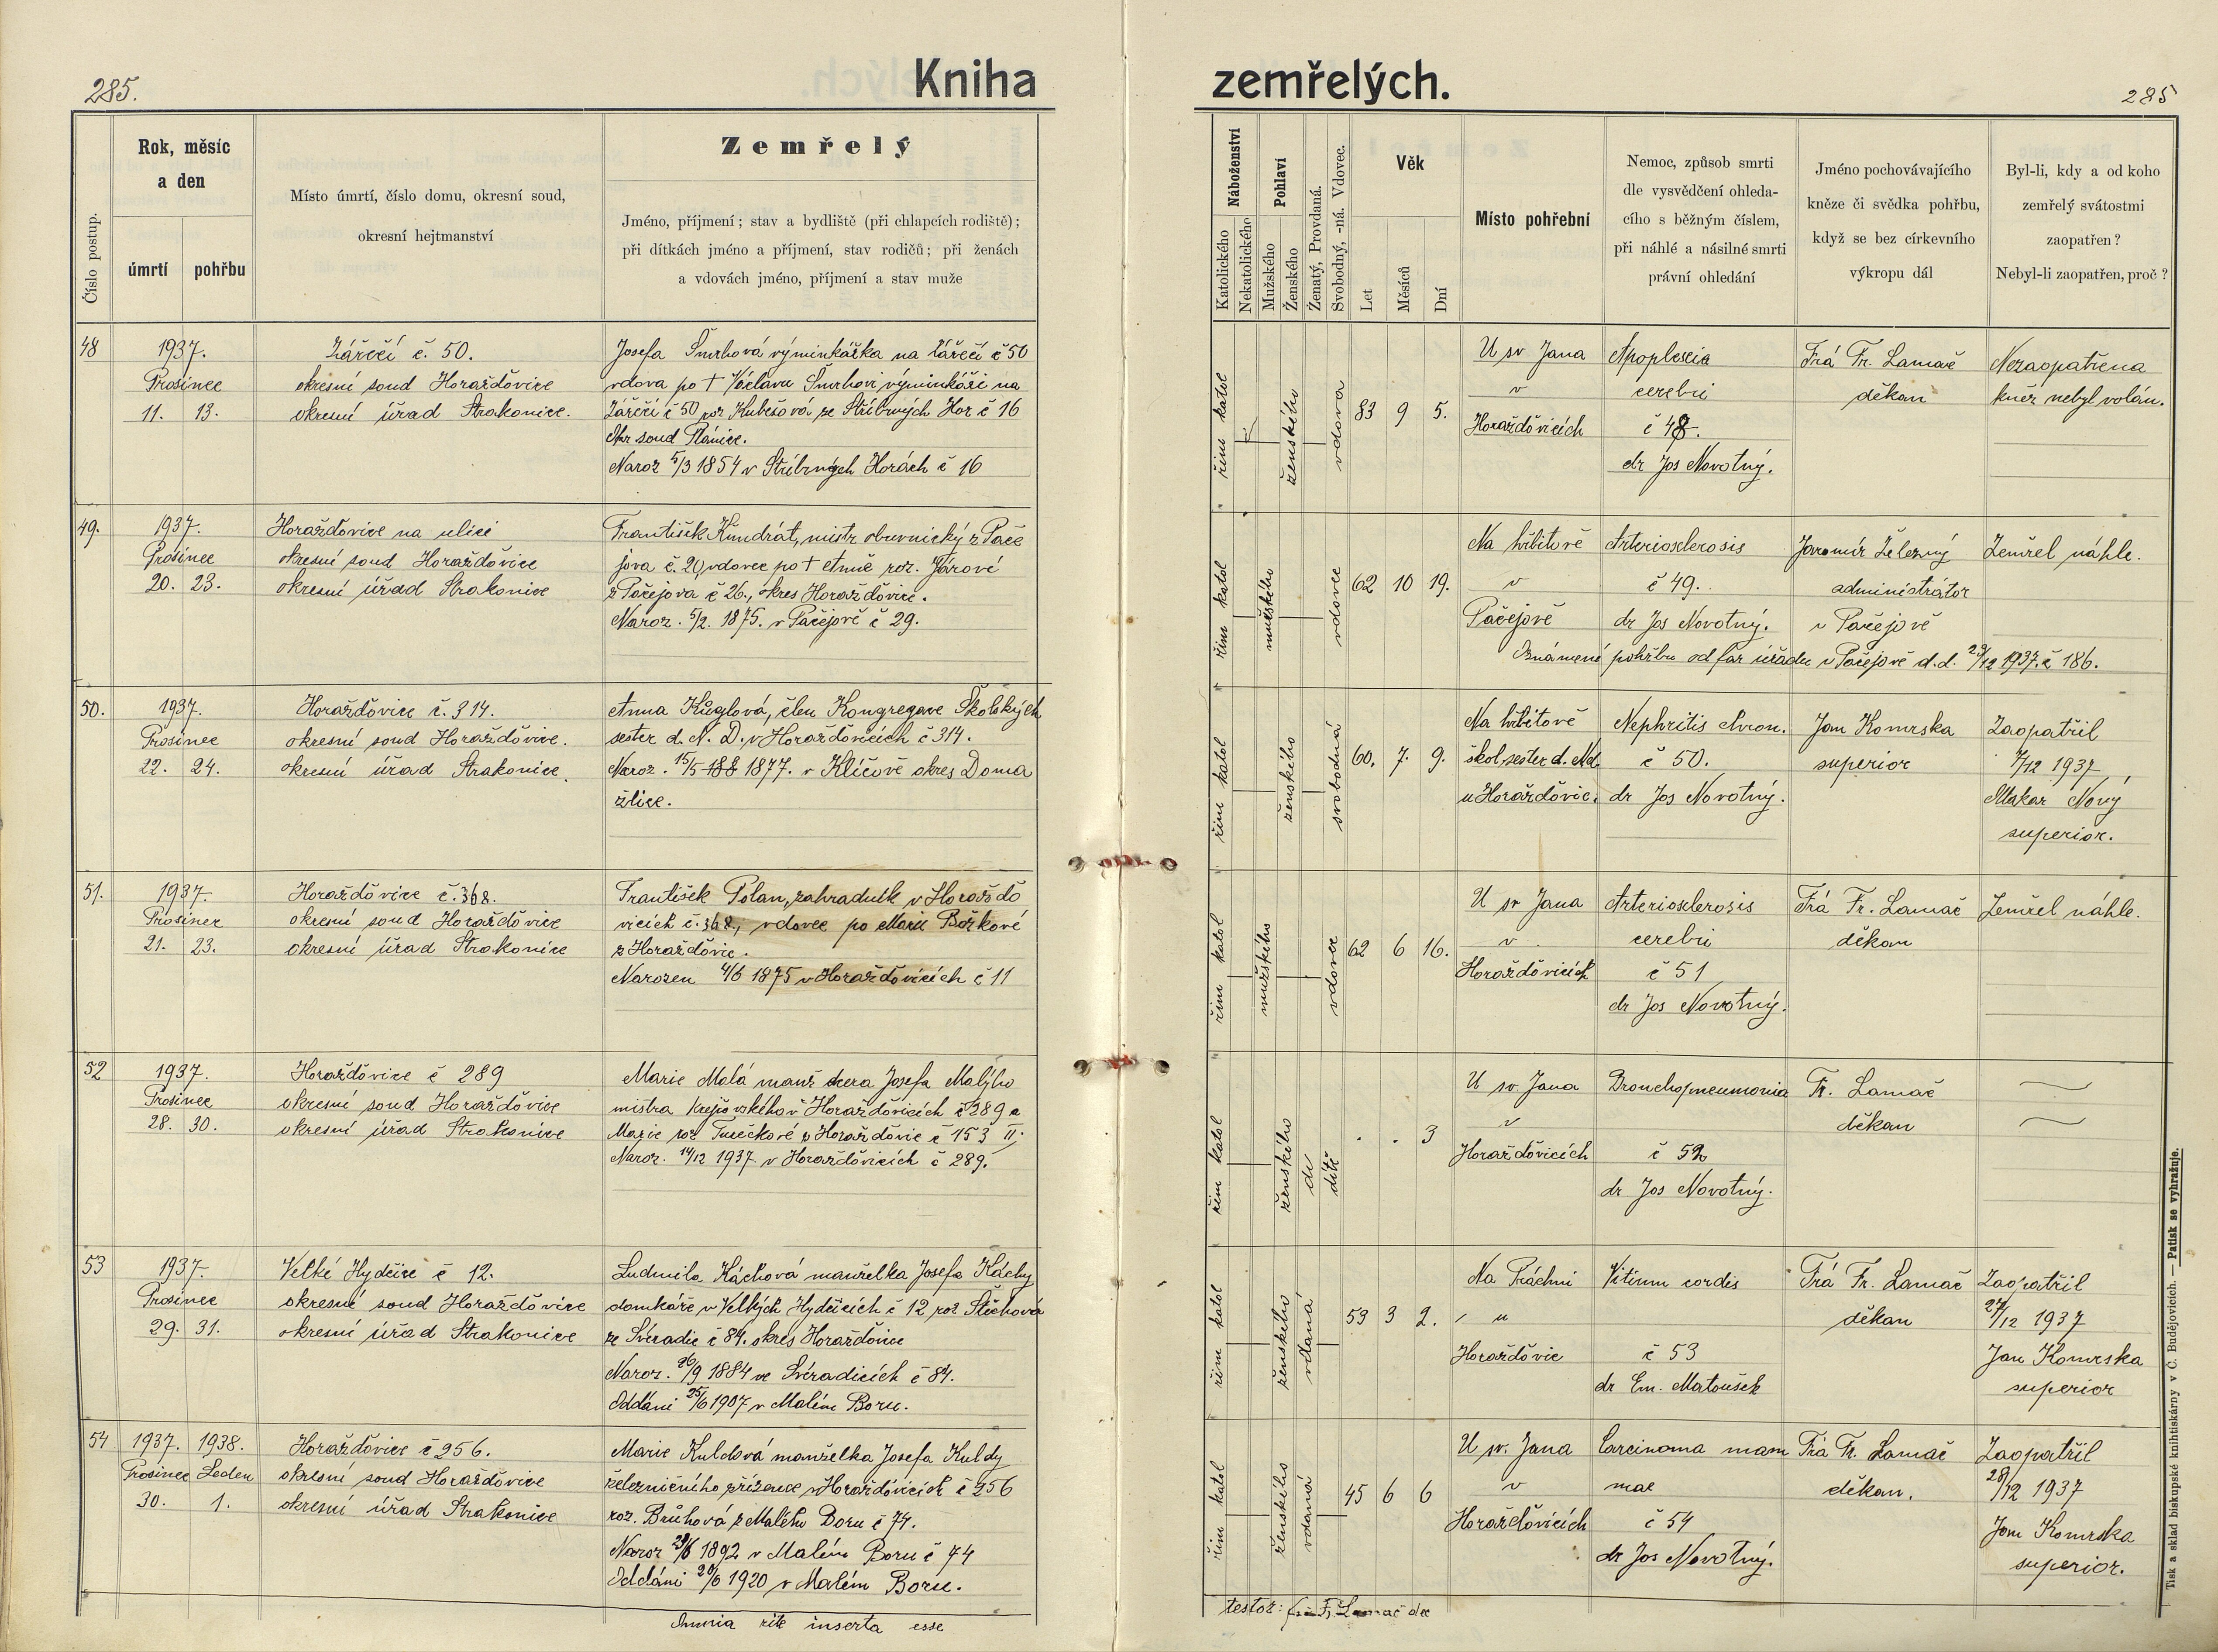 285.
Kniha
zemřelých.
285
Číslo postup.
Rok, měsíc
a den
úmrtí
pohřbu
Místo úmrtí, číslo domu, okresní soud,
okresní hejtmanství
Zemřelý
Jméno, příjmení; stav a bydliště (při chlapcích rodiště);
při dítkách jméno a příjmení, stav rodičů; při ženách
a vdovách jméno, příjmení a stav muže
Náboženství
Katolického
Nekatolického
Pohlaví
Mužského
Ženského
Ženatý, Provdaná.
Svobodný, -ná. Vdovec.
Věk
Let
Měsíců
Dní
Místo pohřební
Nemoc, způsob smrti
dle vysvědčení ohleda-
cího s běžným číslem,
při náhlé a násilné smrti
právní ohledání
Jméno pochovávajícího
kněze či svědka pohřbu,
když se bez církevního
výkropu dál
Byl-li, kdy a od koho
zemřelý svátostmi
zaopatřen?
Nebyl-li zaopatřen, proč?
48
1937.
Prosinec
11. 13.
Zářečí č. 50.
okresní soud Horažďovice
okresní úřad Strakonice.
Josefa Šmrhová výminkářka na Zářečí č 50
vdova po † Václavu Šmrhovi výminkáři na
Zářečí č 50 roz Kubešová ze Stříbrných Hor č 16
Okr soud Plánice.
Naroz 5/3 1854 v Stříbrných Horách č 16
řím katol
ženského
vdova
83 9 5.
U sv Jana
v
Horažďovicích
Apoplexia
cerebri
č 48.
dr Jos Novotný.
Frá Fr. Lamač
děkan
Nezaopatřena
kněz nebyl volán.
49.
1937.
Prosinec
20. 23.
Horažďovice na ulici
okresní soud Horažďovice
okresní úřad Strakonice
František Kundrát, mistr obuvnický z Pače
jova č. 20, vdovec po † Anně roz. Járové
z Pačejova č 26., okres Horažďovice.
Naroz. 5/2. 1875. v Pačejově č 29.
řím katol
mužského
vdovec
62 10 19.
Na hřbitově
v
Pačejově
Arteriosclerosis
č 49.
dr Jos Novotný.
Jaromír Železný
administrátor
v Pačejově
Zemřel náhle.
Oznámení pohřbu od far úřadu v Pačejově d.d. 29/12 1937. č 186.
50.
1937.
Prosinec
22. 24.
Horažďovice č. 314.
okresní soud Horažďovice.
okresní úřad Strakonice.
Anna Kuglová, člen Kongregace Školských
sester d. N. D. v Horažďovicích č 314.
Naroz. 15/5 188 1877. v Klíčově okres Doma
žlice.
řím katol
ženského
svobodná
60. 7. 9.
Na hřbitově
škol. sester d. Nd.
u Horažďovic.
Nephritis chron.
č 50.
dr Jos Novotný.
Jan Komrska
superior
Zaopatřil
7/12 1937,
Makar Nový
superior.
51.
1937.
Prosinec
21. 23.
Horažďovice č. 368.
okresní soud Horažďovice
okresní úřad Strakonice
František Polan, zahradník v Horažďo
vicích č. 368., vdovec po Marii Božkové
z Horažďovic.
Narozen 4/6 1875 v Horažďovicích č 11
řím katol
mužského
vdovec
62 6 16.
U sv Jana
v
Horažďovicích
Arteriosclerosis
cerebri
č 51
dr Jos Novotný.
Frá Fr. Lamač
děkan
Zemřel náhle.
52
1937.
Prosinec
28. 30.
Horažďovice č 289
okresní soud Horažďovice
okresní úřad Strakonice
Marie Malá manž dcera Josefa Malého
mistra krejčovského v Horažďovicích č 289 a
Marie roz Turečkové z Horažďovic č 153 II.
Naroz. 14/12 1937 v Horažďovicích č 289.
řím katol
ženského
dítě
. . 3
U sv. Jana
v
Horažďovicích
Bronchopneumonia
č 52
dr Jos Novotný.
Fr. Lamač
děkan
53
1937.
Prosinec
29. 31.
Velké Hydčice č 12.
okresní soud Horažďovice
okresní úřad Strakonice
Ludmila Káchová manželka Josefa Káchy
domkáře v Velkých Hydčicích č 12 roz Štěchová
ze Svéradic č 84. okres Horažďovice
Naroz. 26/9 1884 ve Svéradicích č 84.
Oddáni 25/6 1907 v Malém Boru.
řím katol
ženského
vdaná
53 3 2.
Na Práchni
u
Horažďovic
Vitium cordis
č 53
dr Em. Matoušek
Frá Fr. Lamač
děkan
Zaopatřil
27/12 1937
Jan Komrska
superior
54
1937. 1938.
Prosinec Leden
30. 1.
Horažďovice č 256.
okresní soud Horažďovice
okresní úřad Strakonice
Marie Kuldová manželka Josefa Kuldy
železničního zřízence v Horažďovicích č 256
roz. Brůhová z Malého Boru č 74.
Naroz 24/6 1892 v Malém Boru č 74
Oddáni 20/6 1920 v Malém Boru.
řím katol
ženského
vdaná
45 6 6
U sv. Jana
v
Horažďovicích
Carcinoma mam
mae
č 54
dr Jos Novotný.
Frá Fr. Lamač
děkan.
Zaopatřil
28/12 1937
Jan Komrska
superior.
Omnia rite inserta esse
testor: Frá Fr Lamač dec
Tisk a sklad biskupské knihtiskárny v Č. Budějovicích. — Patisk se vyhražuje.